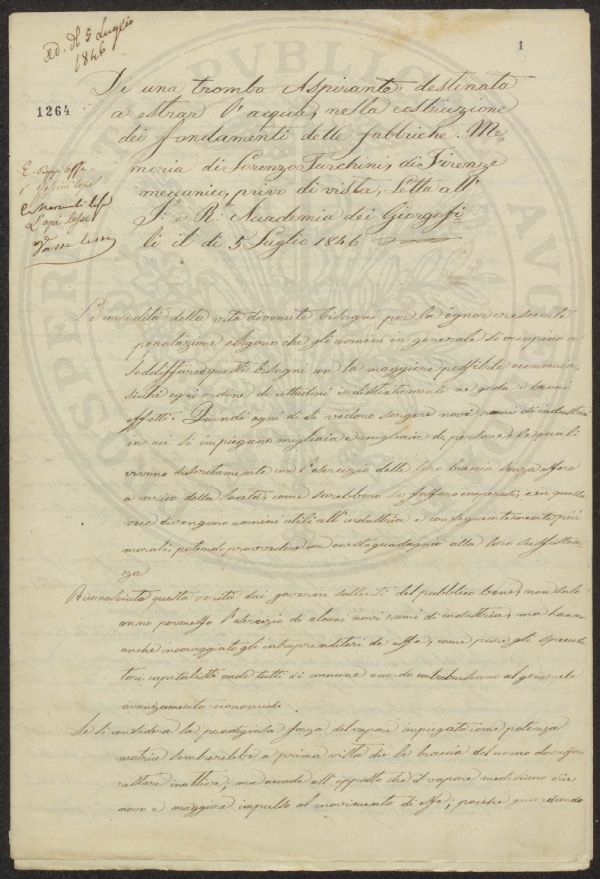 ad. del 5 Luglio
1846
1
1264
Di una tromba Aspirante, destinata
a estrar l'acqua, nella costruzione
dei fondamenti delle fabbriche. Me-
moria di Lorenzo Turchini, di Firenze
meccanico, privo di vista, Letta all'
I. e R. Accademia dei Georgofi-
li il di 5 Luglio 1846
Le comodità della vita divenute bisogni per la ognor crescente
popolazione esigono che gli uomini in generale si occupino a
soddisfare questi bisogni con la maggiore possibile economia,
sicché ogni ordine di cittadini indistintamente ne goda i buoni
effetti. Quindi ogni dì si vedono sorgere novi rami di industria
in cui si impiegano migliaia e migliaia di persone, le quali
vivono discretamente con l'esercizio delle loro braccia senza essere
a carico della società, come sarebbero se fossero inoperosi, e in quella
vece divengono uomini utili all'industria e conseguentemente più
morali, potendo provvedere con onesto guadagno alla loro sussisten-
za
Riconosciuta questa verità dai governi solleciti del pubblico bene, non solo
anno permesso l'esercizio di alcuni novi rami di industria, ma hann
anche incoraggiato gli intraprenditori di essa, come pure gli specula
tori capitalisti onde tutti di comune accordo contribuissero al generale
avanzamento economico.
Se si considera la prodigiosa forza del vapore impiegata come potenza
motrice sembrerebbe a prima vista che le braccia del uomo dovesser
restare inattive, ma accade all'opposto che il vapore medesimo die
novo e maggiore impulso al movimento di esse; poiché